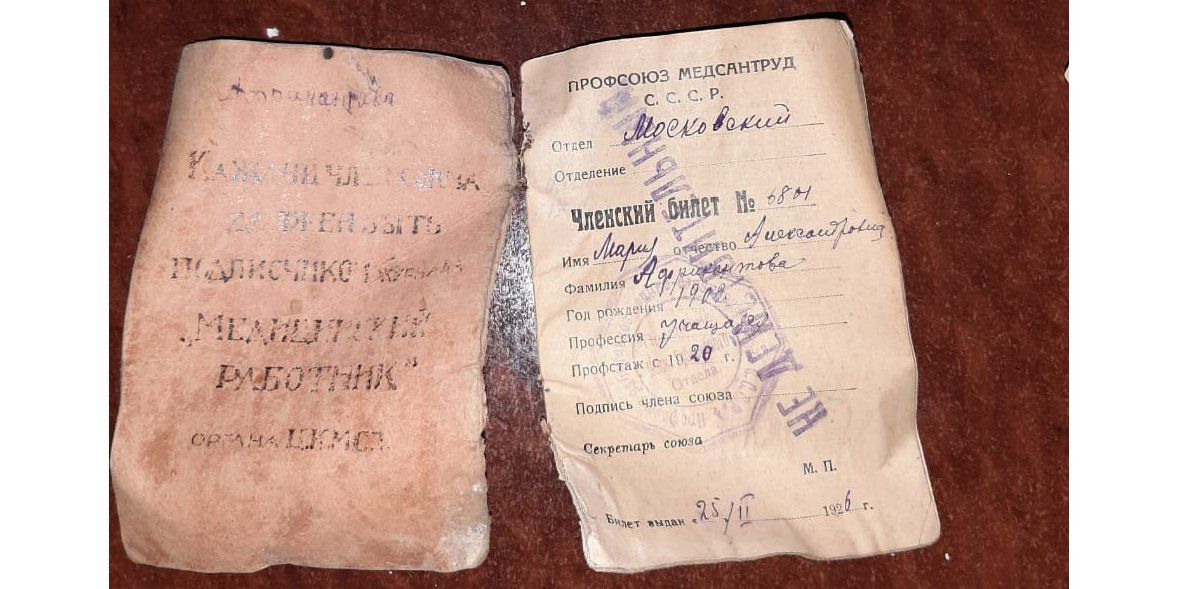 Африкантова
КАЖДЫЙ ЧЛЕН СОЮЗА
ДОЛЖЕН БЫТЬ
ПОДПИСЧИКОМ
„МЕДИЦИНСКИЙ
РАБОТНИК"
ОРГАНА
ПРОФСОЮЗ МЕДСАНТРУД
С. С. С. Р.
Отдел Московский
Отделение
Членский билет №
Имя Мария отчество Александровна
Фамилия Африкантова
Год рождения 1908
Профессия учащаяся
Профстаж с 1920 г.
Подпись члена союза
Секретарь союза
М. П.
Билет выдан „25/II 1926 г.
НЕ ДЕЙСТВИТЕЛЬНЫЙ
Отдела